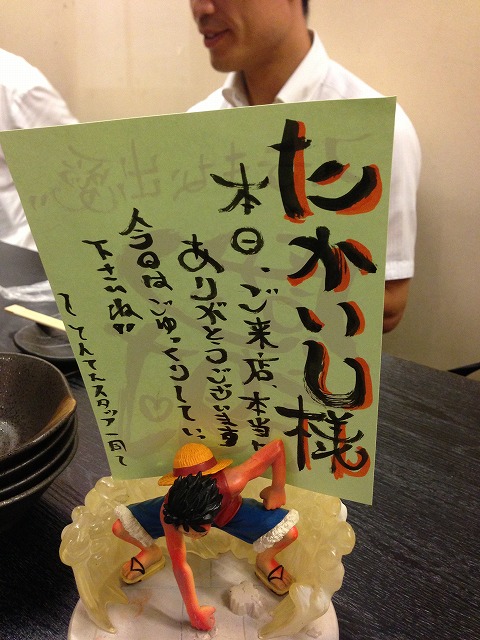 たかいし様
本日、ご来店、本当に
ありがとうございます
今日はごゆっくりしてい
下さいね!!
〜てんてんスタッフ一同〜